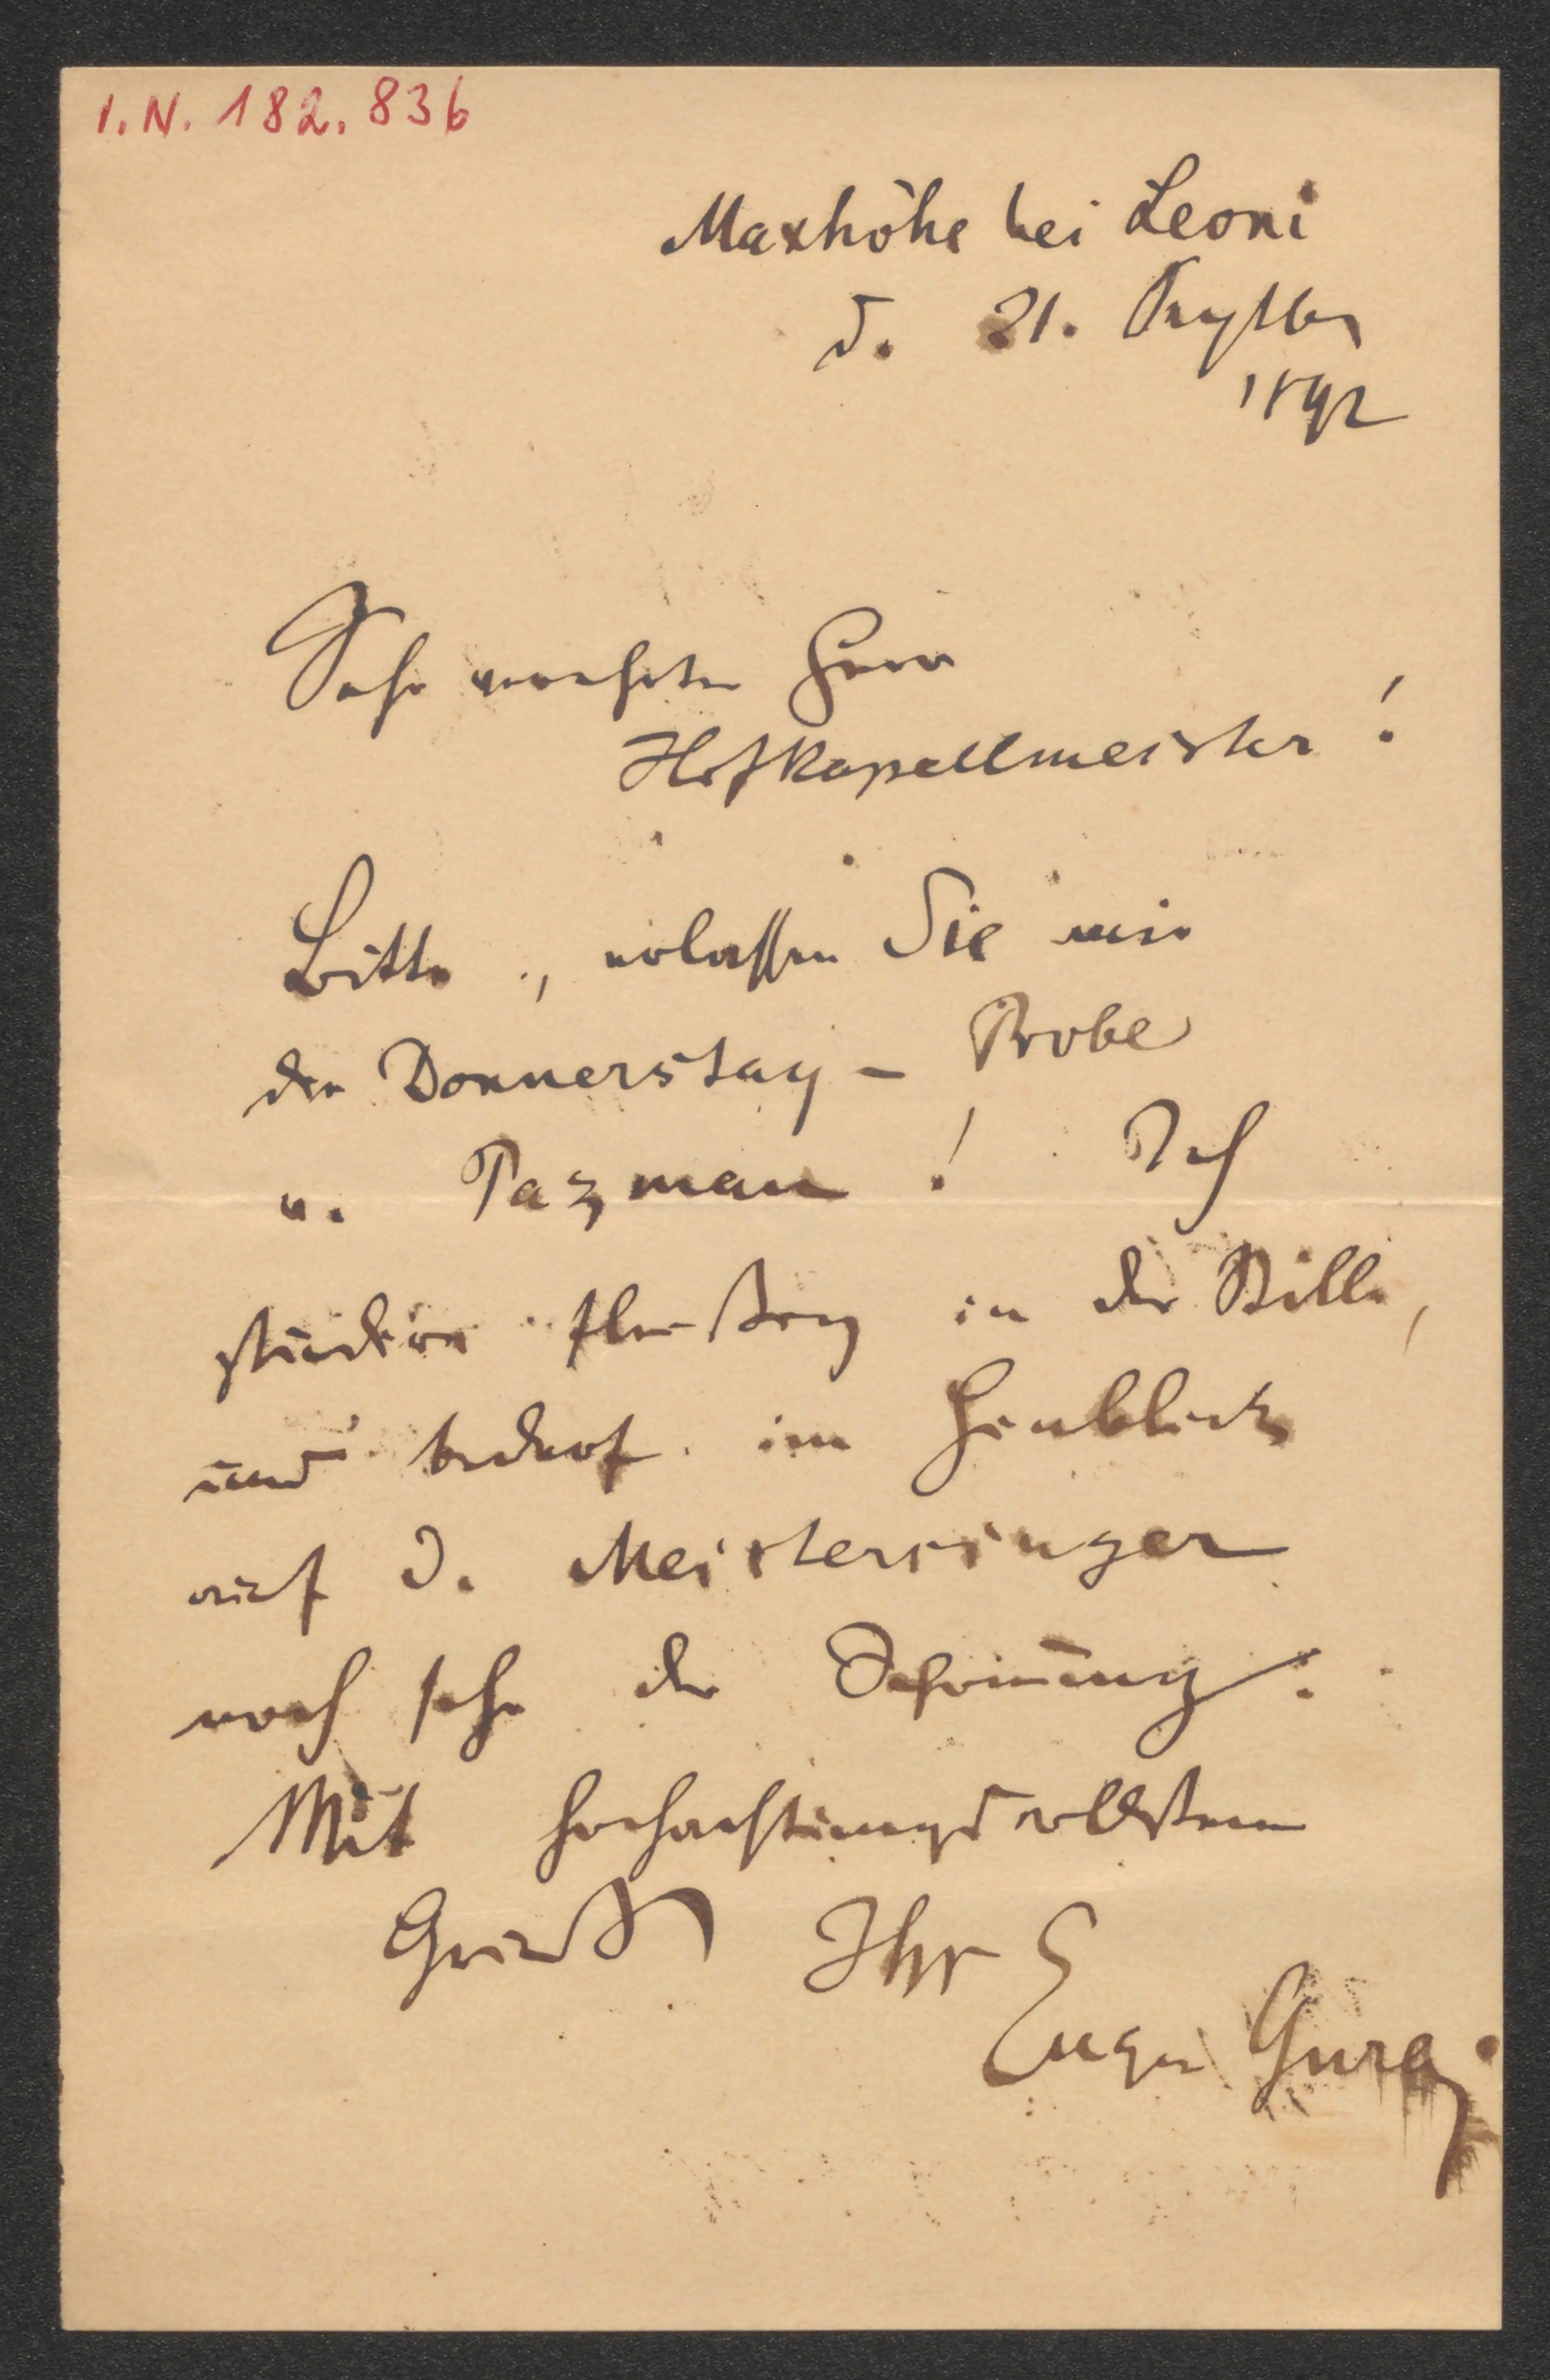 I.N. 182.836
Maxhöhe bei Leoni
d. 21. Septber
1892
Sehr verehrter Herr
Hofkapellmeister!
Bitte, erlassen Sie mir
die Donnerstag-Probe
v. Pazman! Ich
studire fleißig in der Stille,
und bedarf im Hinblick
auf d. Meistersinger
noch sehr der Schonung.
Mit hochachtungsvollstem
Gruß Ihr
Eugen Gura.